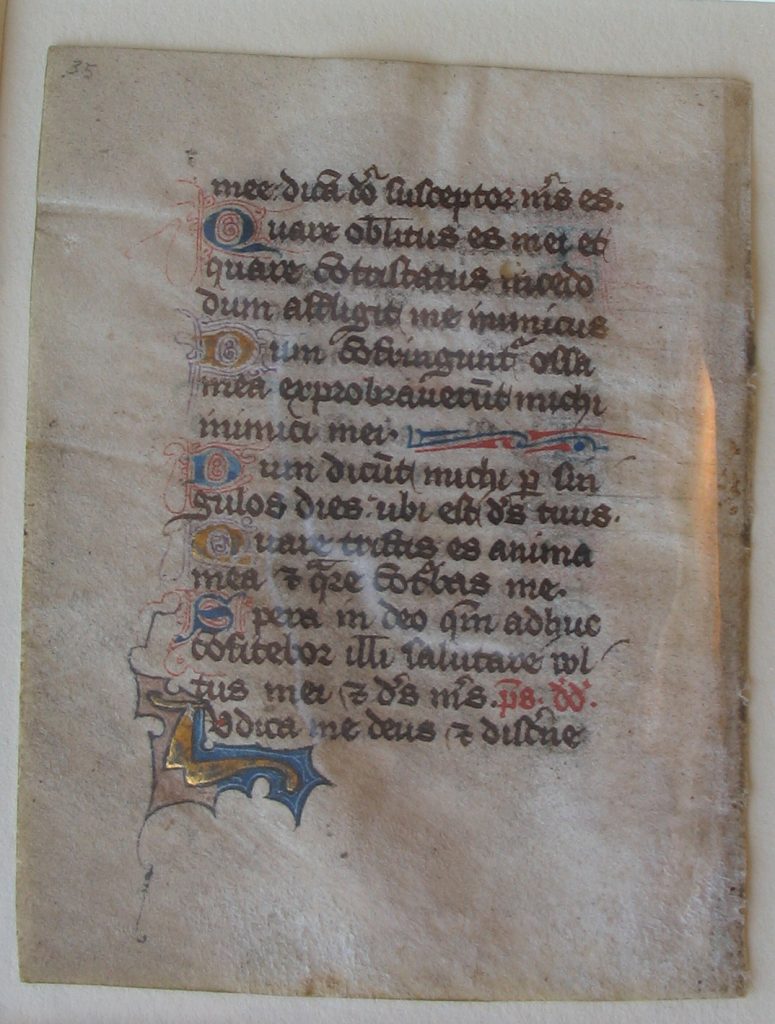 35
mee dicā dō susceptor mṡ es.
Quare oblitus es mei et
quare cōtristatus incedo
dum affligit me inimicus
Dum cōfringunt ossa
mea exprobrauerūt michi
inimici mei.
Dum dicūt michi ꝑ sin
gulos dies ubi est dṡ tuus.
Quare tristis es anima
mea ⁊ qre cōtbas me.
Spera in deo qm̄ adhuc
cōfitebor illi salutare vul
tus mei ⁊ dṡ mṡ. pṡ. dd.
Iudica me deus ⁊ discne